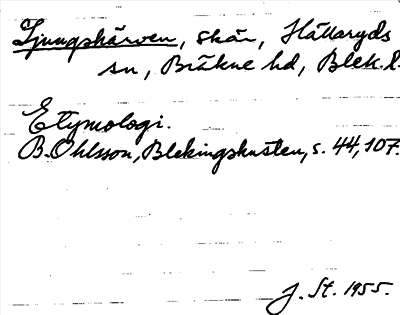 Ljungskärven, skär, Hällaryds
sn, Bräkne hd, Blek. l.
Etymologi.
B. Ohlsson, Blekingskusten, s. 44, 107.
J. St. 1955.